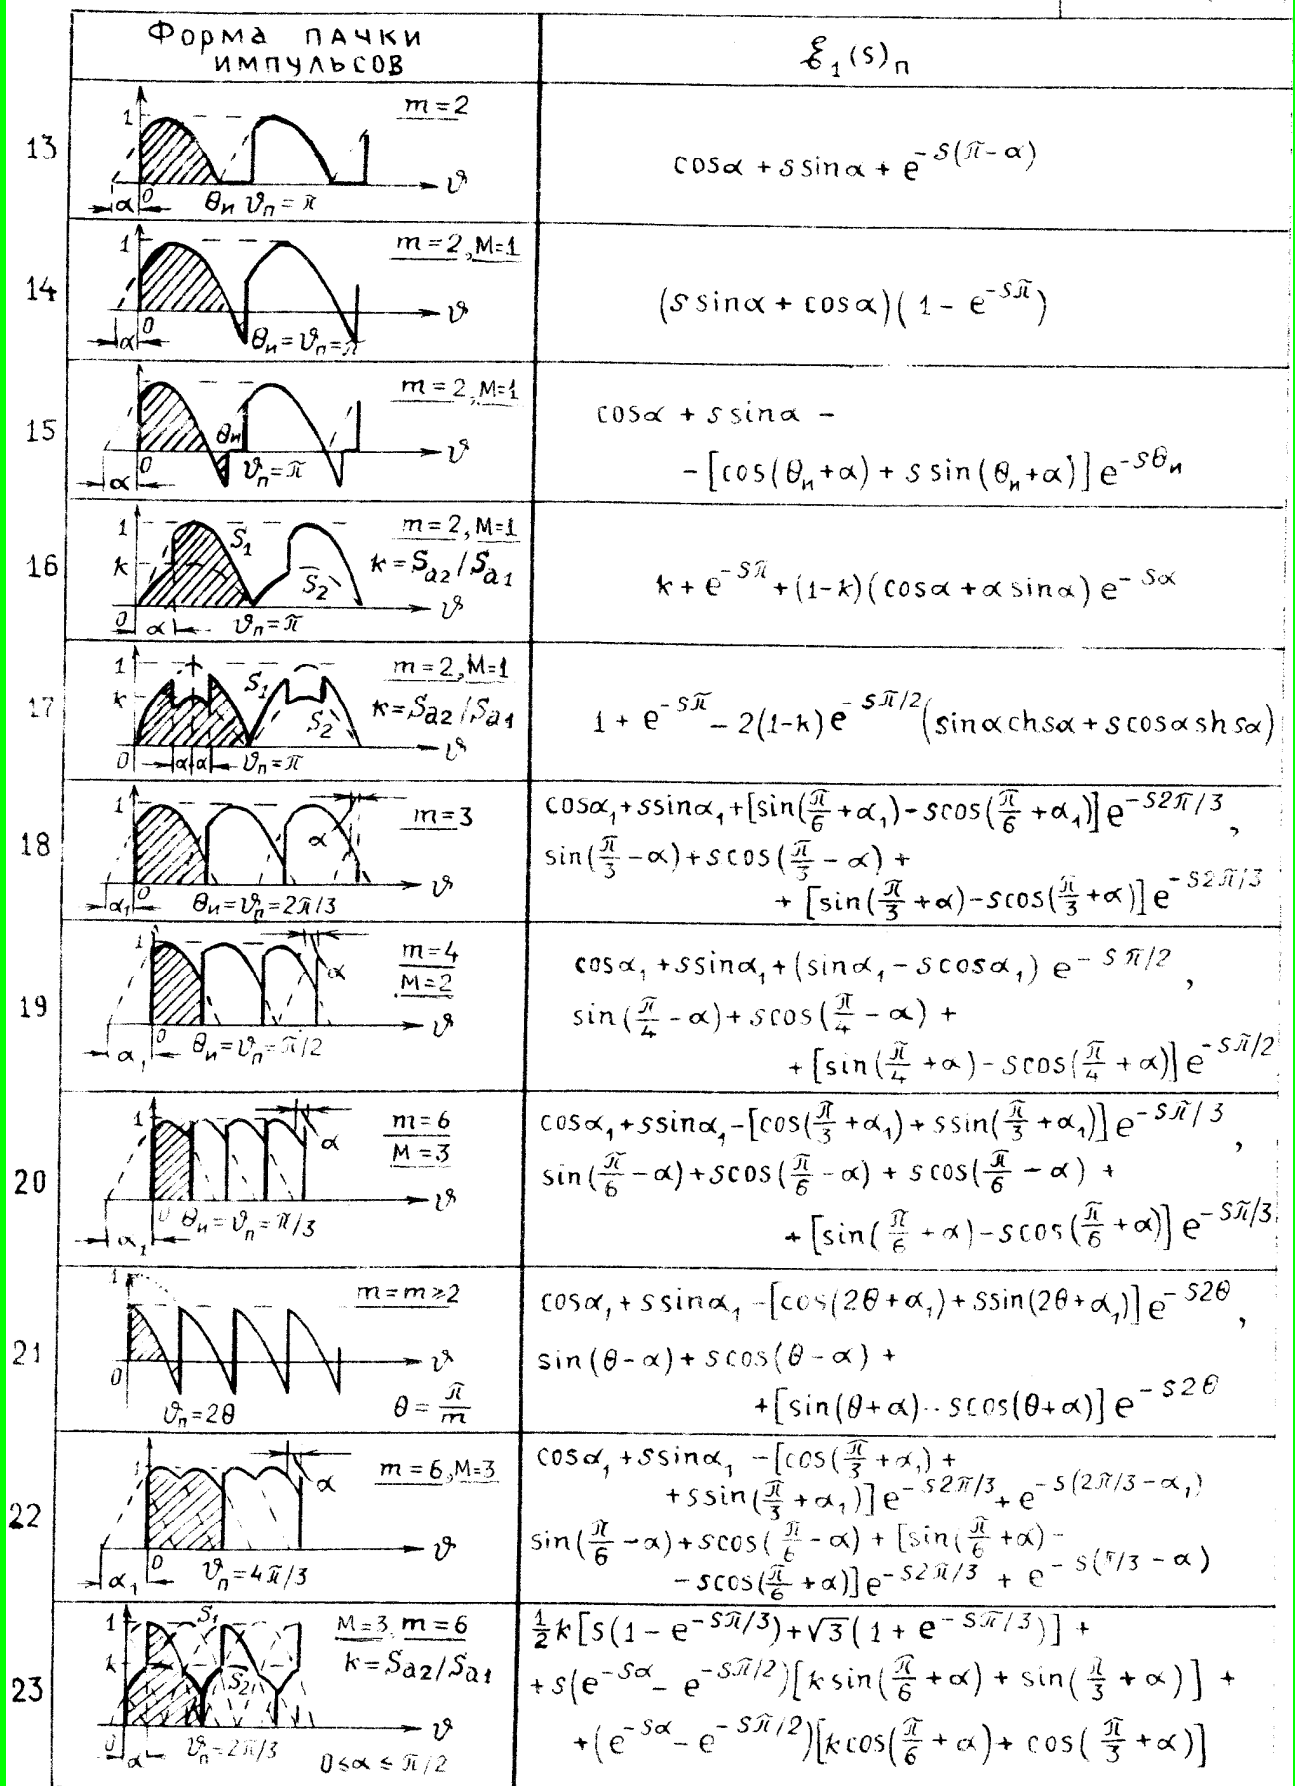 Форма пачки импульсов
ℰ₁(s)п
13
m=2
1
α 0 θи ϑп=π ϑ
cosα + s sinα + e^{-s(π-α)}
14
m=2, M=1
1
α 0 θи=ϑп=π ϑ
(s sinα + cosα)(1 - e^{-sπ})
15
m=2, M=1
1
θи
α 0 ϑп=π ϑ
cosα + s sinα -
- [cos(θи+α) + s sin(θи+α)] e^{-sθи}
16
m=2, M=1
k=Sa2/Sa1
1 S1
k S2
0 α ϑп=π ϑ
k + e^{-sπ} + (1-k)(cosα + α sinα) e^{-sα}
17
m=2, M=1
k=Sa2/Sa1
1 S1
k S2
0 α α ϑп=π ϑ
1 + e^{-sπ} - 2(1-k) e^{-sπ/2}(sinα ch sα + s cosα sh sα)
18
m=3
1 α
α₁ 0 θи=ϑп=2π/3 ϑ
cosα₁ + s sinα₁ + [sin(π/6 + α₁) - s cos(π/6 + α₁)] e^{-s2π/3},
sin(π/3 - α) + s cos(π/3 - α) +
+ [sin(π/3 + α) - s cos(π/3 + α)] e^{-s2π/3}
19
m=4
M=2
1 α
α₁ 0 θи=ϑп=π/2 ϑ
cosα₁ + s sinα₁ + (sinα₁ - s cosα₁) e^{-sπ/2},
sin(π/4 - α) + s cos(π/4 - α) +
+ [sin(π/4 + α) - s cos(π/4 + α)] e^{-sπ/2}
20
m=6
M=3
1 α
α₁ 0 θи=ϑп=π/3 ϑ
cosα₁ + s sinα₁ - [cos(π/3 + α₁) + s sin(π/3 + α₁)] e^{-sπ/3},
sin(π/6 - α) + s cos(π/6 - α) + s cos(π/6 - α) +
+ [sin(π/6 + α) - s cos(π/6 + α)] e^{-sπ/3}
21
m=m≥2
1
0 ϑ
ϑп=2θ θ=π/m
cosα₁ + s sinα₁ - [cos(2θ+α₁) + s sin(2θ+α₁)] e^{-s2θ},
sin(θ-α) + s cos(θ-α) +
+ [sin(θ+α) - s cos(θ+α)] e^{-s2θ}
22
m=6, M=3
1 α
α₁ 0 ϑп=4π/3 ϑ
cosα₁ + s sinα₁ - [cos(π/3 + α₁) +
+ s sin(π/3 + α₁)] e^{-s2π/3} + e^{-s(2π/3-α₁)}
sin(π/6 - α) + s cos(π/6 - α) + [sin(π/6 + α) -
- s cos(π/6 + α)] e^{-s2π/3} + e^{-s(π/3-α)}
23
M=3, m=6
k=Sa2/Sa1
1 S1
k S2
0 α ϑп=2π/3 ϑ
0≤α≤π/2
½k[s(1 - e^{-sπ/3}) + √3(1 + e^{-sπ/3})] +
+ s(e^{-sα} - e^{-sπ/2})[k sin(π/6 + α) + sin(π/3 + α)] +
+ (e^{-sα} - e^{-sπ/2})[k cos(π/6 + α) + cos(π/3 + α)]